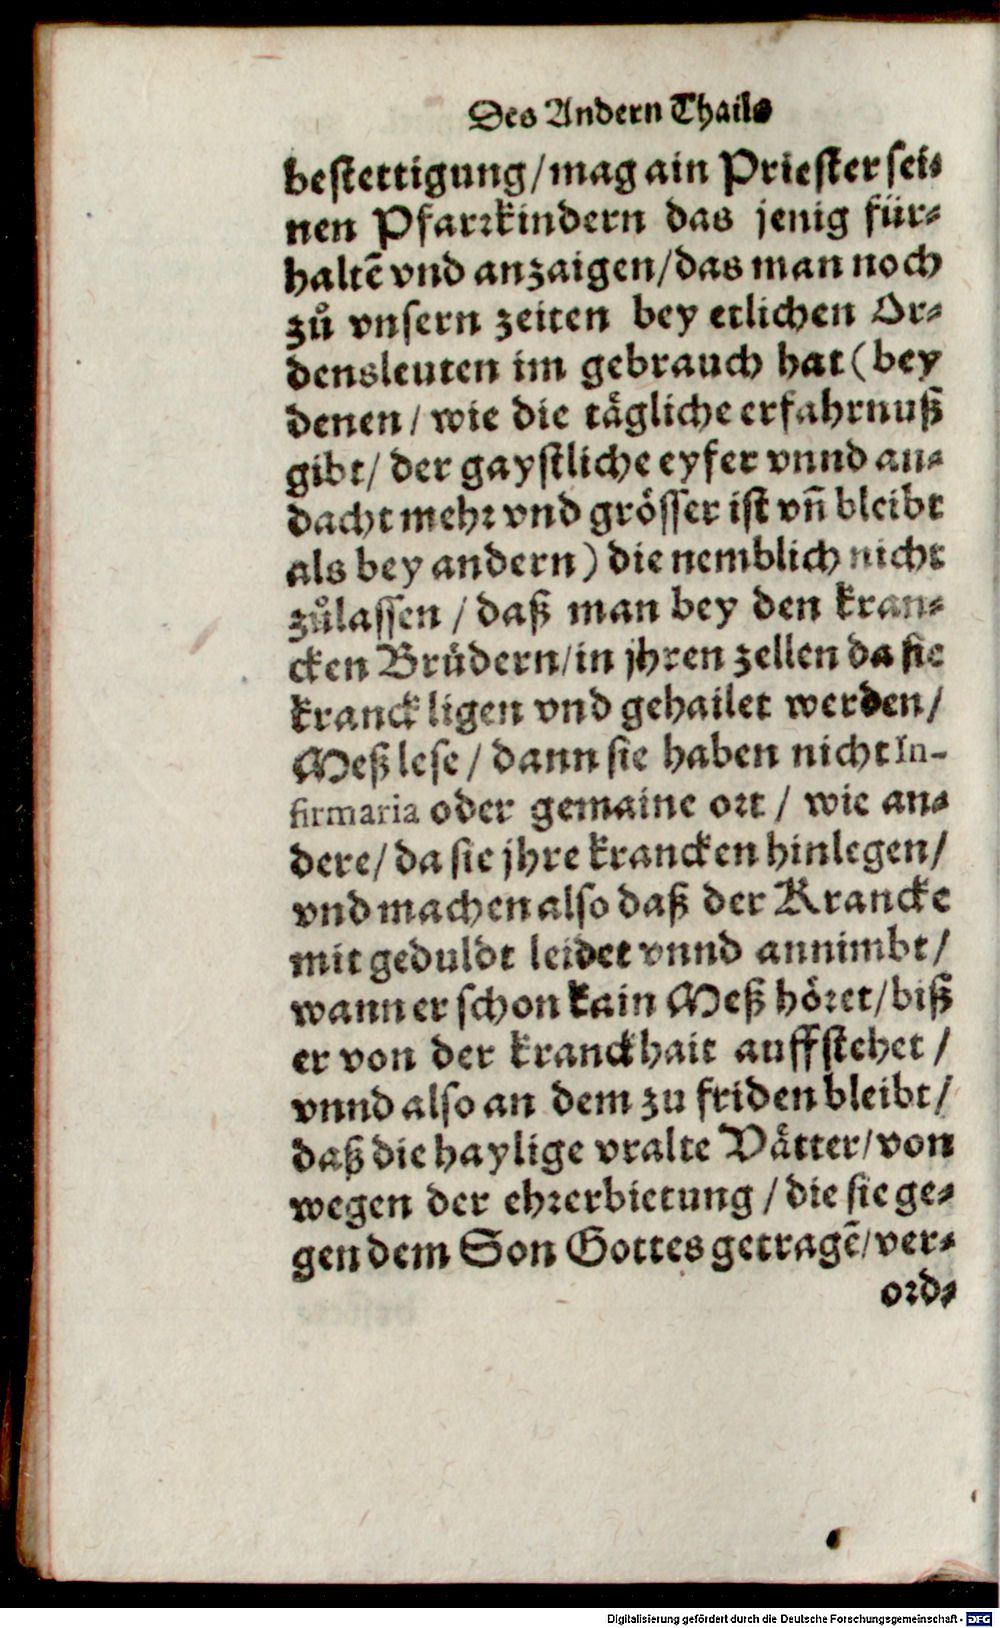 Des Andern Thails
bestettigung/mag ain Priester sei⸗
nen Pfarꝛkindern das jenig für⸗
haltẽ vnd anzaigen/das man noch
zů vnsern zeiten bey etlichen Or⸗
densleuten im gebrauch hat (bey
denen/ wie die tägliche erfahrnuß
gibt/ der gaystliche eyfer vnnd an⸗
dacht mehꝛ vnd grösser ist vñ bleibt
als bey andern) die nemblich nicht
zůlassen / daß man bey den kran⸗
cken Brüdern/in jhren zellen da sie
kranck ligen vnd gehailet werden/
Meß lese / dann sie haben nicht In-
firmaria oder gemaine oꝛt / wie an⸗
dere/ da sie jhre krancken hinlegen/
vnd machen also daß der Krancke
mit geduldt leidet vnnd annimbt/
wann er schon kain Meß höꝛet/biß
er von der kranckhait auffstehet /
vnnd also an dem zu friden bleibt/
daß die haylige vralte Vätter/von
wegen der ehꝛerbietung / die sie ge⸗
gen dem Son Gottes getragẽ/ver⸗
oꝛd⸗
Digitalisierung gefördert durch die Deutsche Forschungsgemeinschaft - DFG